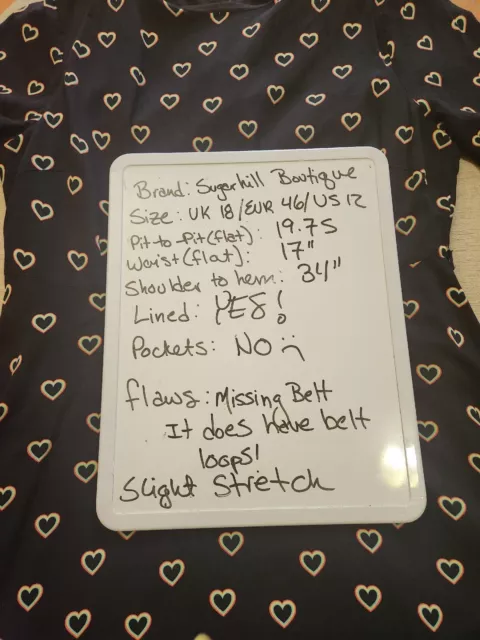 Brand: Sugarhill Boutique
Size: UK 18/EUR 46/US 12
Pit to Pit (flat): 19.75
Waist (flat): 17"
Shoulder to hem: 34"
Lined: YES!
Pockets: NO :(
flaws: Missing Belt
It does have belt
loops!
Slight Stretch